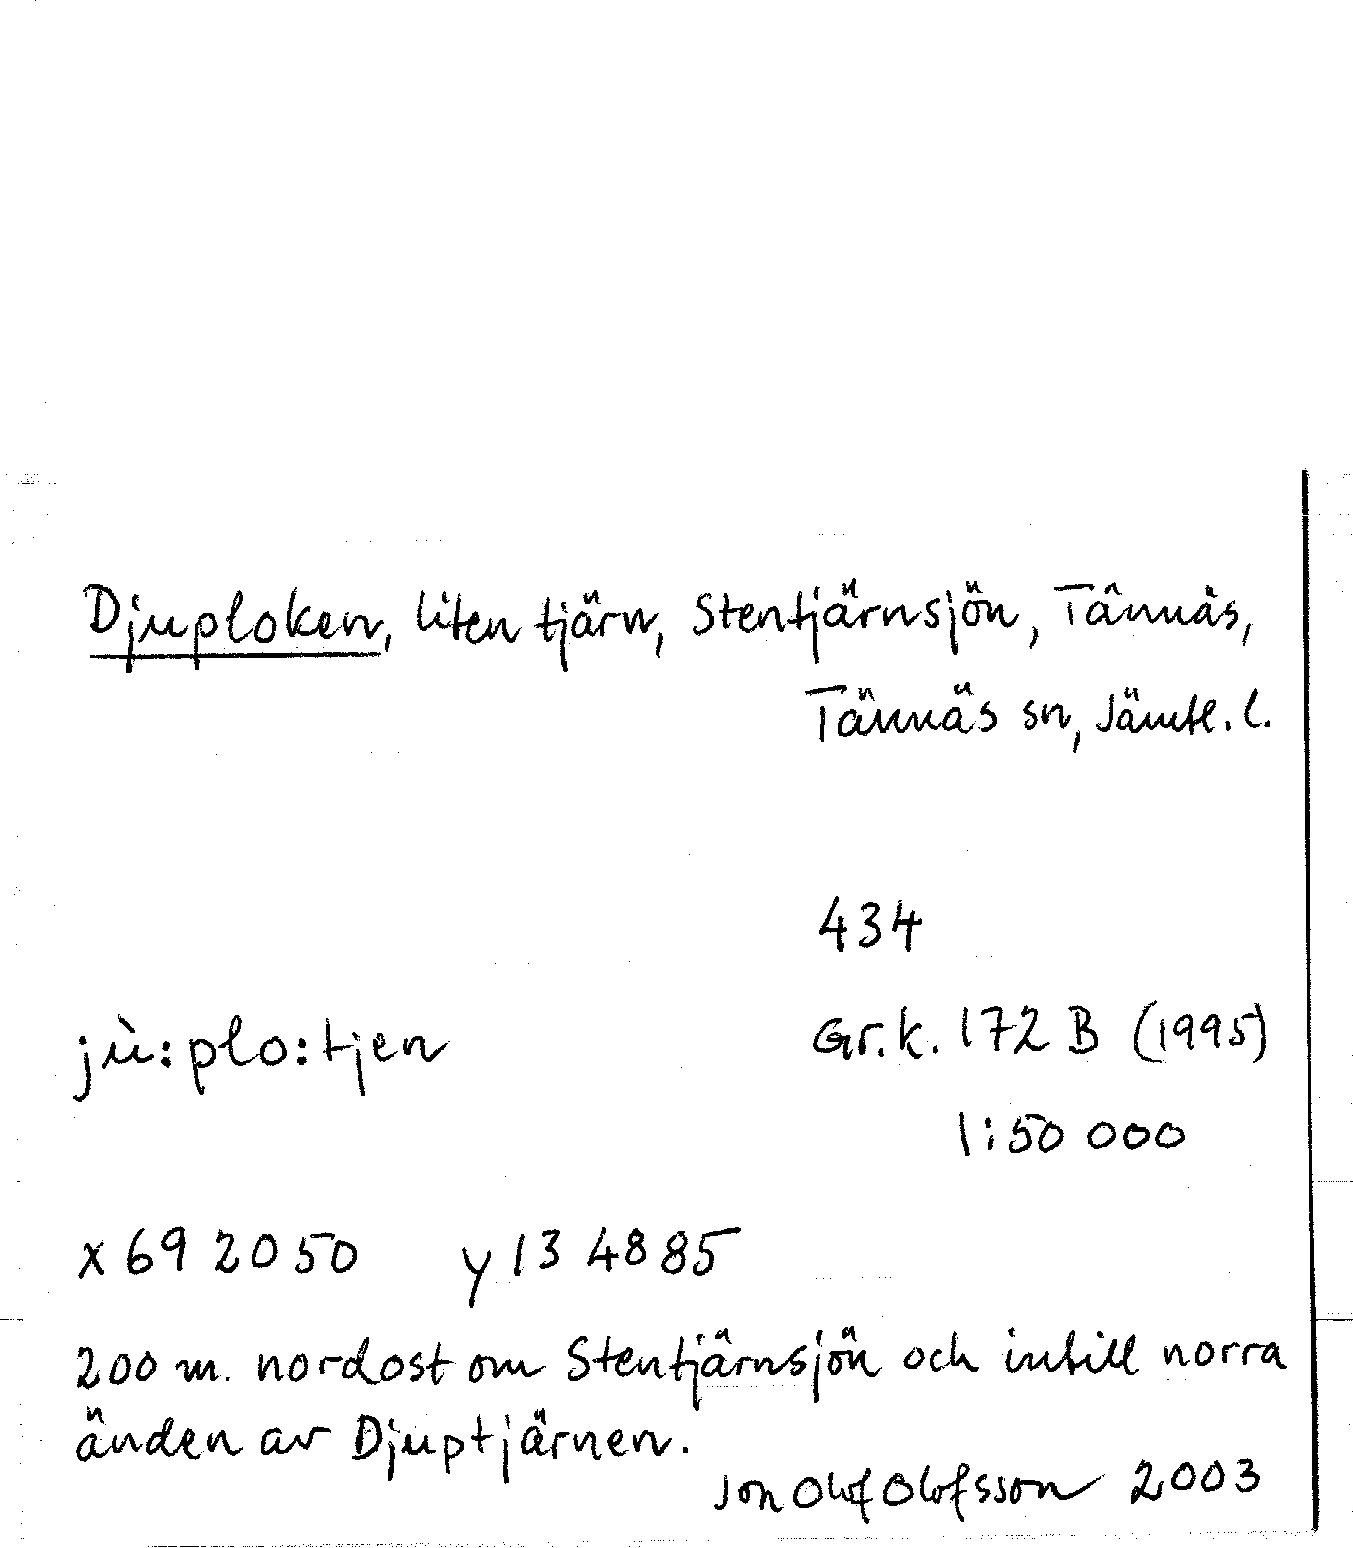 Djuploken, liten tjärn, Stentjärnsjön, Tännäs,
Tännäs sn, Jämtl. l.
434
jù:plo:tjen
Gr.k. 172 B (1995)
1:50 000
x 69 2050 y 13 4885
200 m. nordost om Stentjärnsjön och intill norra
änden av Djuptjärnen.
Jon Olof Olofsson 2003